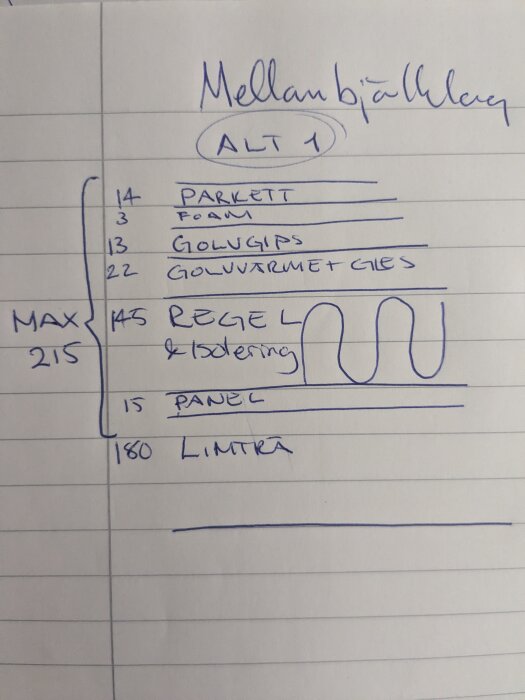 Mellanbjälklag
ALT 1
14 PARKETT
3 FOAM
13 GOLVGIPS
22 GOLVVÄRME + GLES
MAX 215
145 REGEL
& Isolering
15 PANEL
180 LIMTRÄ